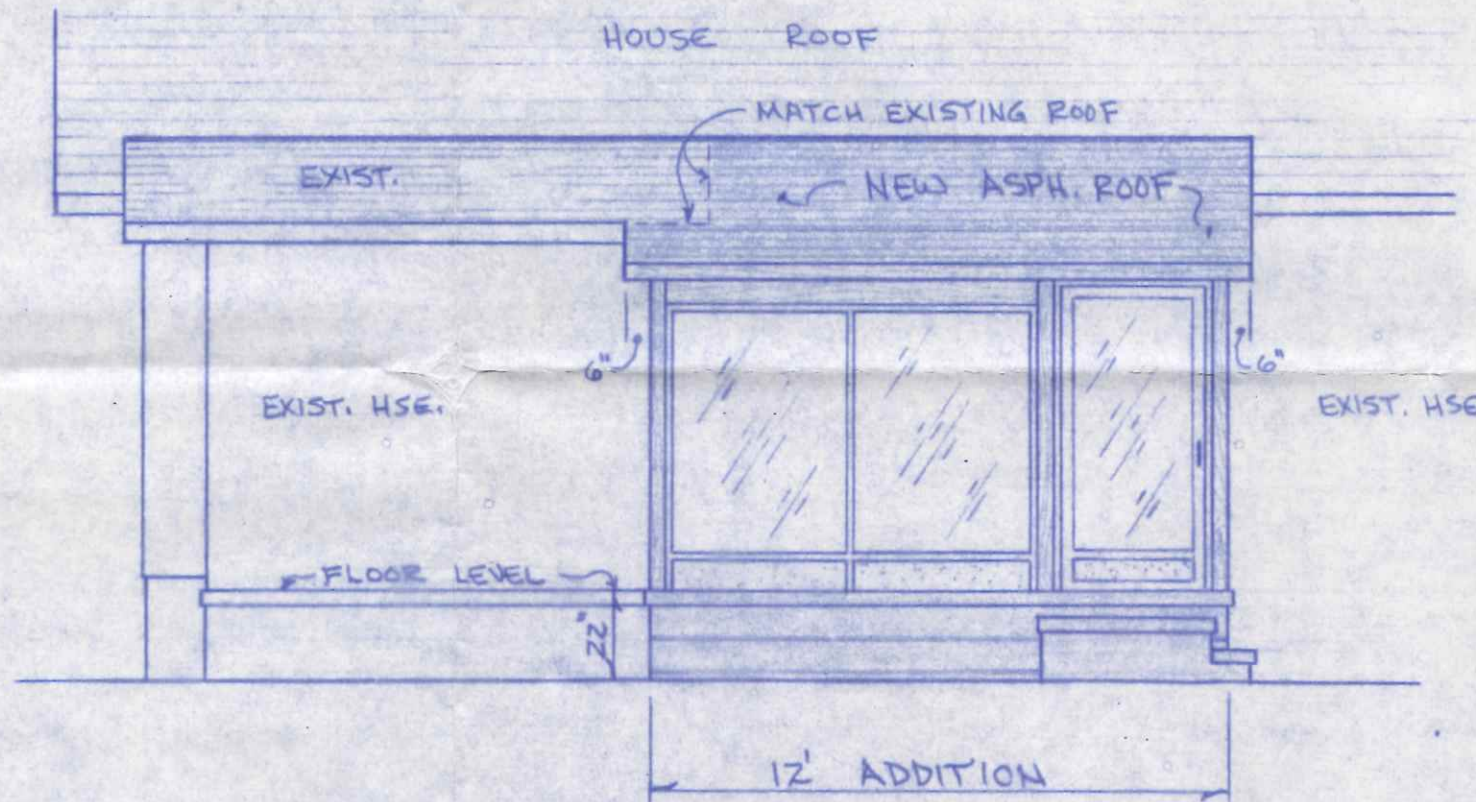 HOUSE ROOF
MATCH EXISTING ROOF
EXIST.
NEW ASPH. ROOF
6"
6"
EXIST. HSE.
EXIST. HSE
FLOOR LEVEL
22"
12' ADDITION